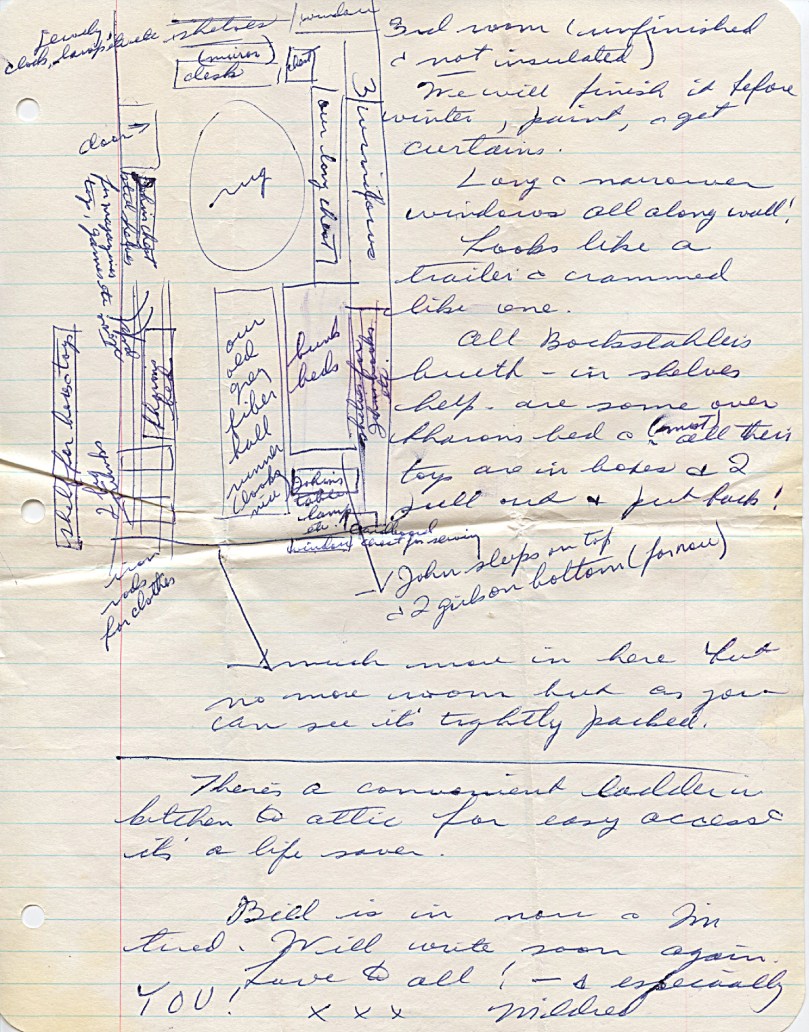 shelves
window
3rd room (unfinished
& not insulated)
We will finish it before
winter, paint, & get
curtains.
Long & narrower
windows all along wall!
Looks like a
trailer & crammed
like one.
All Bockstahlers
built-in shelves
help. are some over
Sharons bed & (most) all their
toys are in boxes & I
pull out & put back!
(mirror)
desk
chest
door
rug
our long chest
3 windows
for magazines
toys, games etc
our
old
grey
fiber
hall
runner
(looks
nice)
bunk
beds
table
lamp
etc.
window
chest for sewing
shelf for hats - top
iron
rods
for clothes
John sleeps on top
& 2 girls on bottom (for now)
much more in here but
no more room but as you
can see it's tightly packed.
There's a convenient ladder in
kitchen to attic for easy access &
it's a life saver.
Bill is in now & I'm
tired. Will write soon again.
Love to all! - & especially
YOU! x x x Mildred